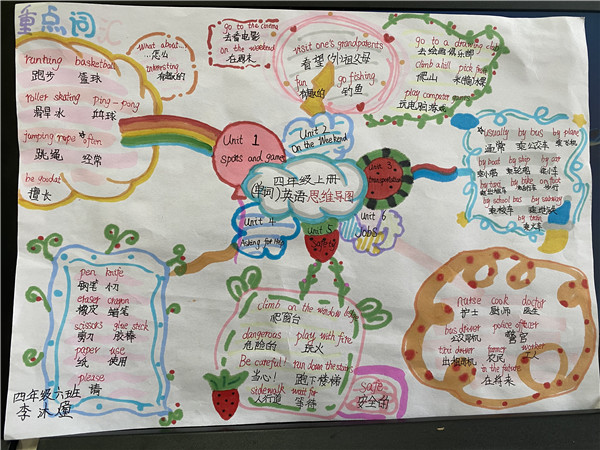 重点词汇
running basketball
跑步 篮球
roller skating ping-pong
滑旱冰 乒乓球
jumping rope often
跳绳 经常
be good at
擅长
What about...
...怎么
interesting
有趣的
go to the cinema
去看电影
on the weekend
在周末
visit one's grandparents
看望(外)祖父母
fun go fishing
有趣的 钓鱼
go to a drawing club
去绘画俱乐部
climb a hill pick fruit
爬山
play computer games
玩电脑游戏
Unit 1
Sports and games
Unit 2
On the Weekend
Unit 3
Transportation
四年级上册
(单词)英语思维导图
Unit 4
Asking for Help
Unit 5
Safety
Unit 6
Jobs
usually by bus by plane
通常 乘公交车 乘飞机
by boat by ship by car
by taxi by bike on foot
by school bus by subway
乘校车 乘地铁
by train
乘火车
pen knife
钢笔 小刀
eraser crayon
橡皮 蜡笔
scissors glue stick
剪刀 胶棒
paper use
纸 使用
please
请
四年级六班
climb on the window ledge
爬窗台
dangerous play with fire
危险的 玩火
Be careful! run down the stairs
当心! 跑下楼梯
sidewalk wait for
人行道 等待
safe
安全的
nurse cook doctor
护士 厨师 医生
bus driver police officer
公交司机 警官
taxi driver farmer worker
出租司机 农民 工人
in the future
在将来